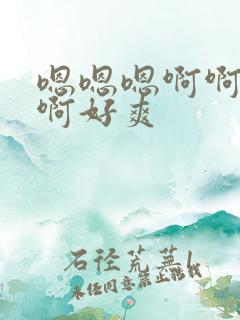 嗯嗯嗯啊啊
啊好爽
石径荒芜l
未经同意禁止转载